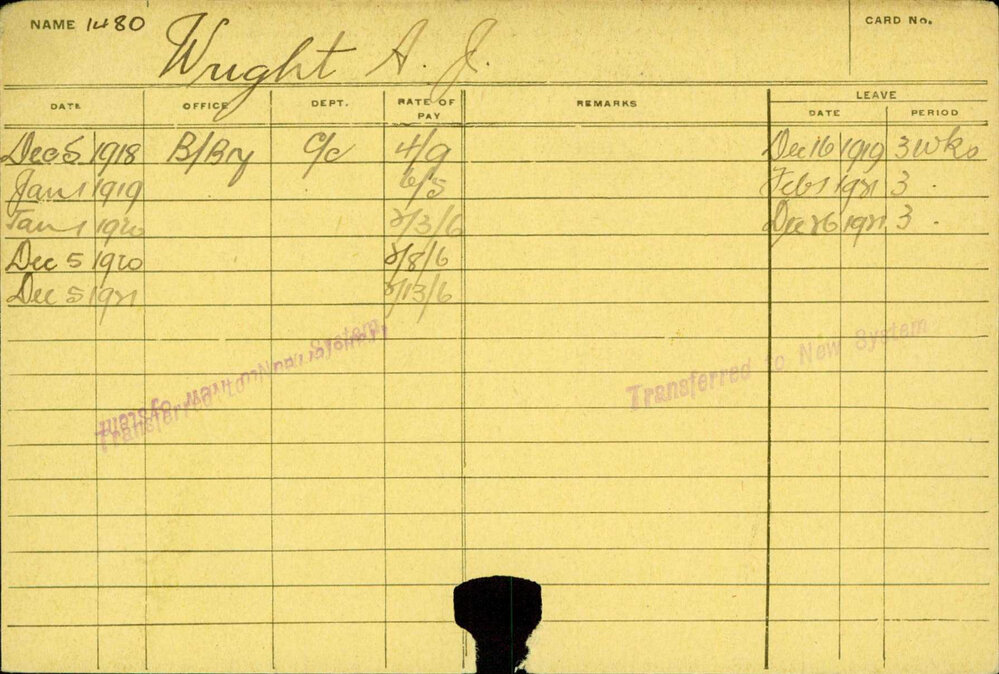 NAME 1480 Wright A. J. CARD No.
DATE OFFICE DEPT. RATE OF PAY REMARKS LEAVE DATE PERIOD
Dec 5 1918 B/Bry C/c 4/9 Dec 16 1919 3 wks
Jan 1 1919 6/5 Feb 1 1921 3 .
Jan 1 1920 2/3/6 Dec 26 1921 3 .
Dec 5 1920 2/8/6
Dec 5 1921 2/13/6
Transferred to New System
Transferred to New System